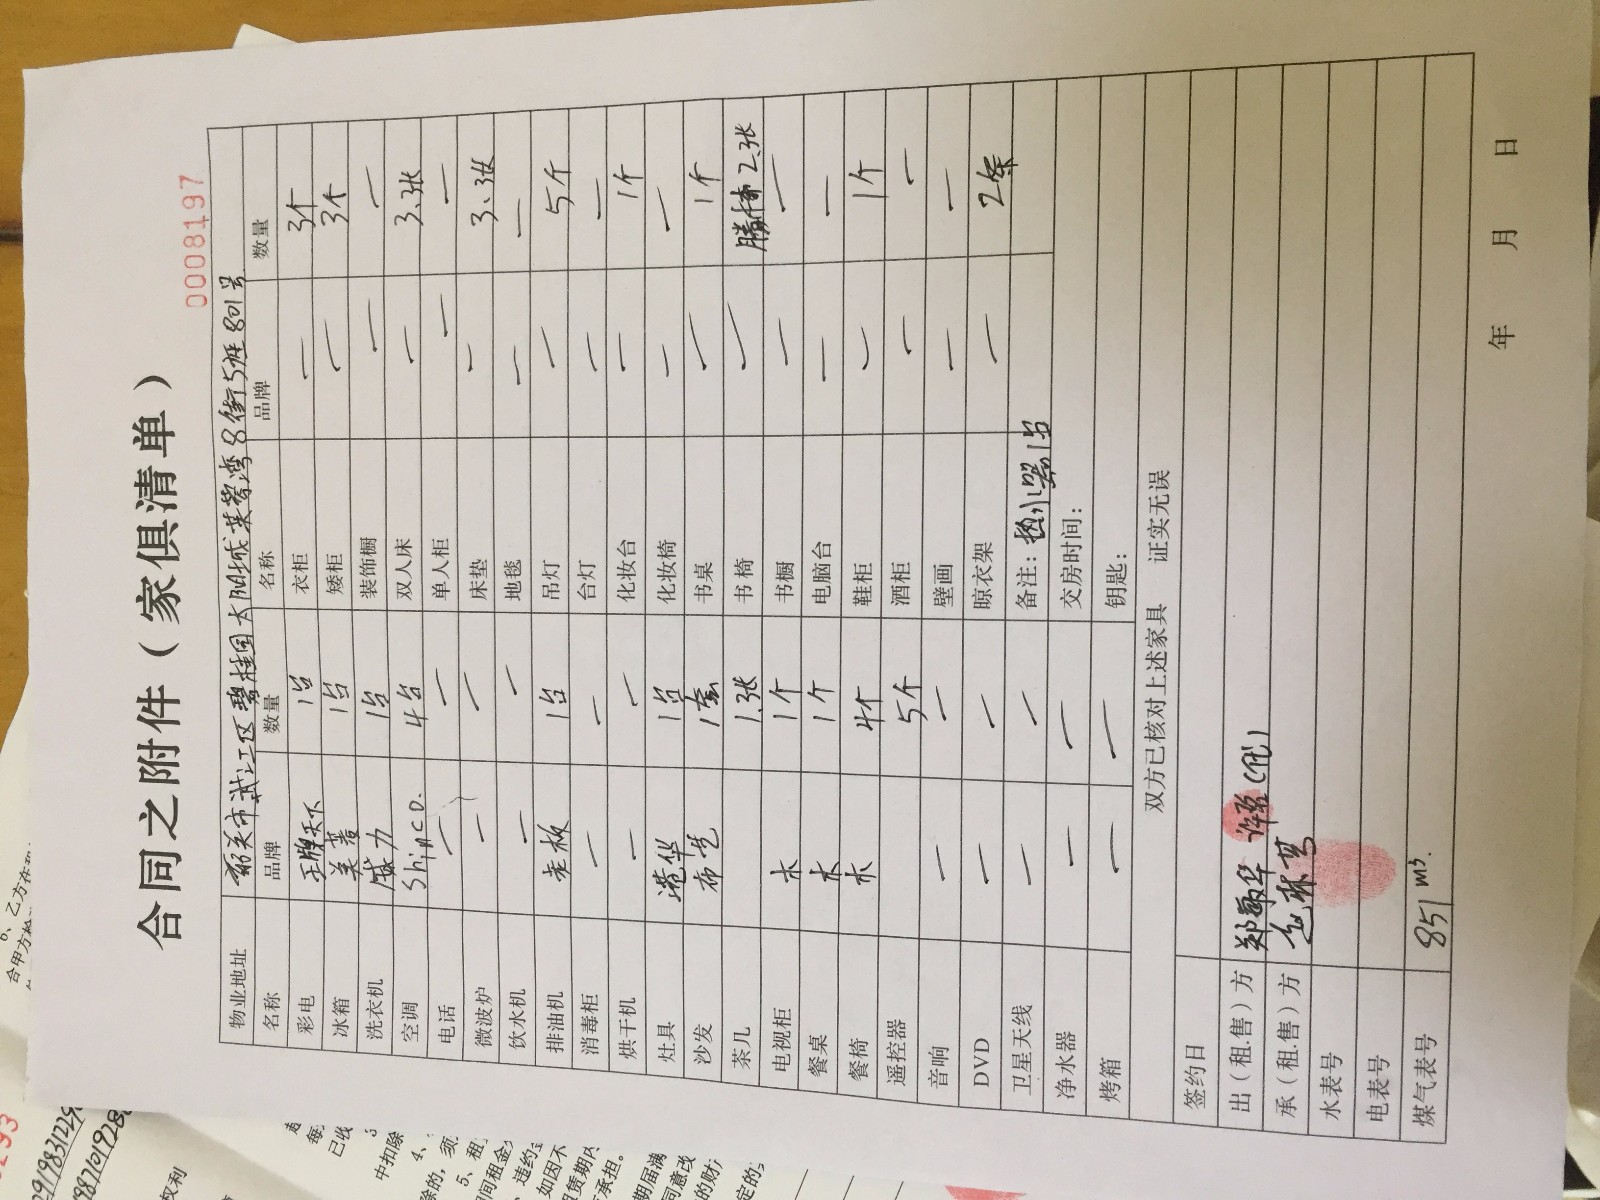 合同之附件（家俱清单）
0008197
物业地址 韶关市武江区碧桂园太阳城芙蓉湾8街5座801号
名称 品牌 数量 名称 品牌 数量
彩电 王牌天下 1台 衣柜 — 3个
冰箱 美菱 1台 矮柜 — 3个
洗衣机 威力 1台 装饰橱 — —
空调 Shinco. 4台 双人床 — 3.张
电话 — — 单人柜 — —
微波炉 — — 床垫 — 3.张
饮水机 — — 地毯 — —
排油机 老板 1台 吊灯 — 5个
消毒柜 — — 台灯 — —
烘干机 — — 化妆台 — 1个
灶具 港华 1台 化妆椅 — —
沙发 布艺 1套 书桌 — 1个
茶几 1.张 书椅 — 藤椅2.张
电视柜 木 1个 书橱 — —
餐桌 木 1个 电脑台 — —
餐椅 木 4个 鞋柜 — 1个
遥控器 5个 酒柜 — —
音响 — — 壁画 — —
DVD — — 晾衣架 — 2条
卫星天线 — — 备注：热水器1台
净水器 — — 交房时间：
烤箱 — — 钥匙：
双方已核对上述家具 证实无误
签约日
出（租.售）方 郑敏华 (代)
承（租.售）方
水表号
电表号
煤气表号 851 m³.
年 月 日
6、乙方在
合甲方
中扣除
4、
5、租
违约
如因不
租赁期内
承担。
期届满
同意改
的财
定的
权利